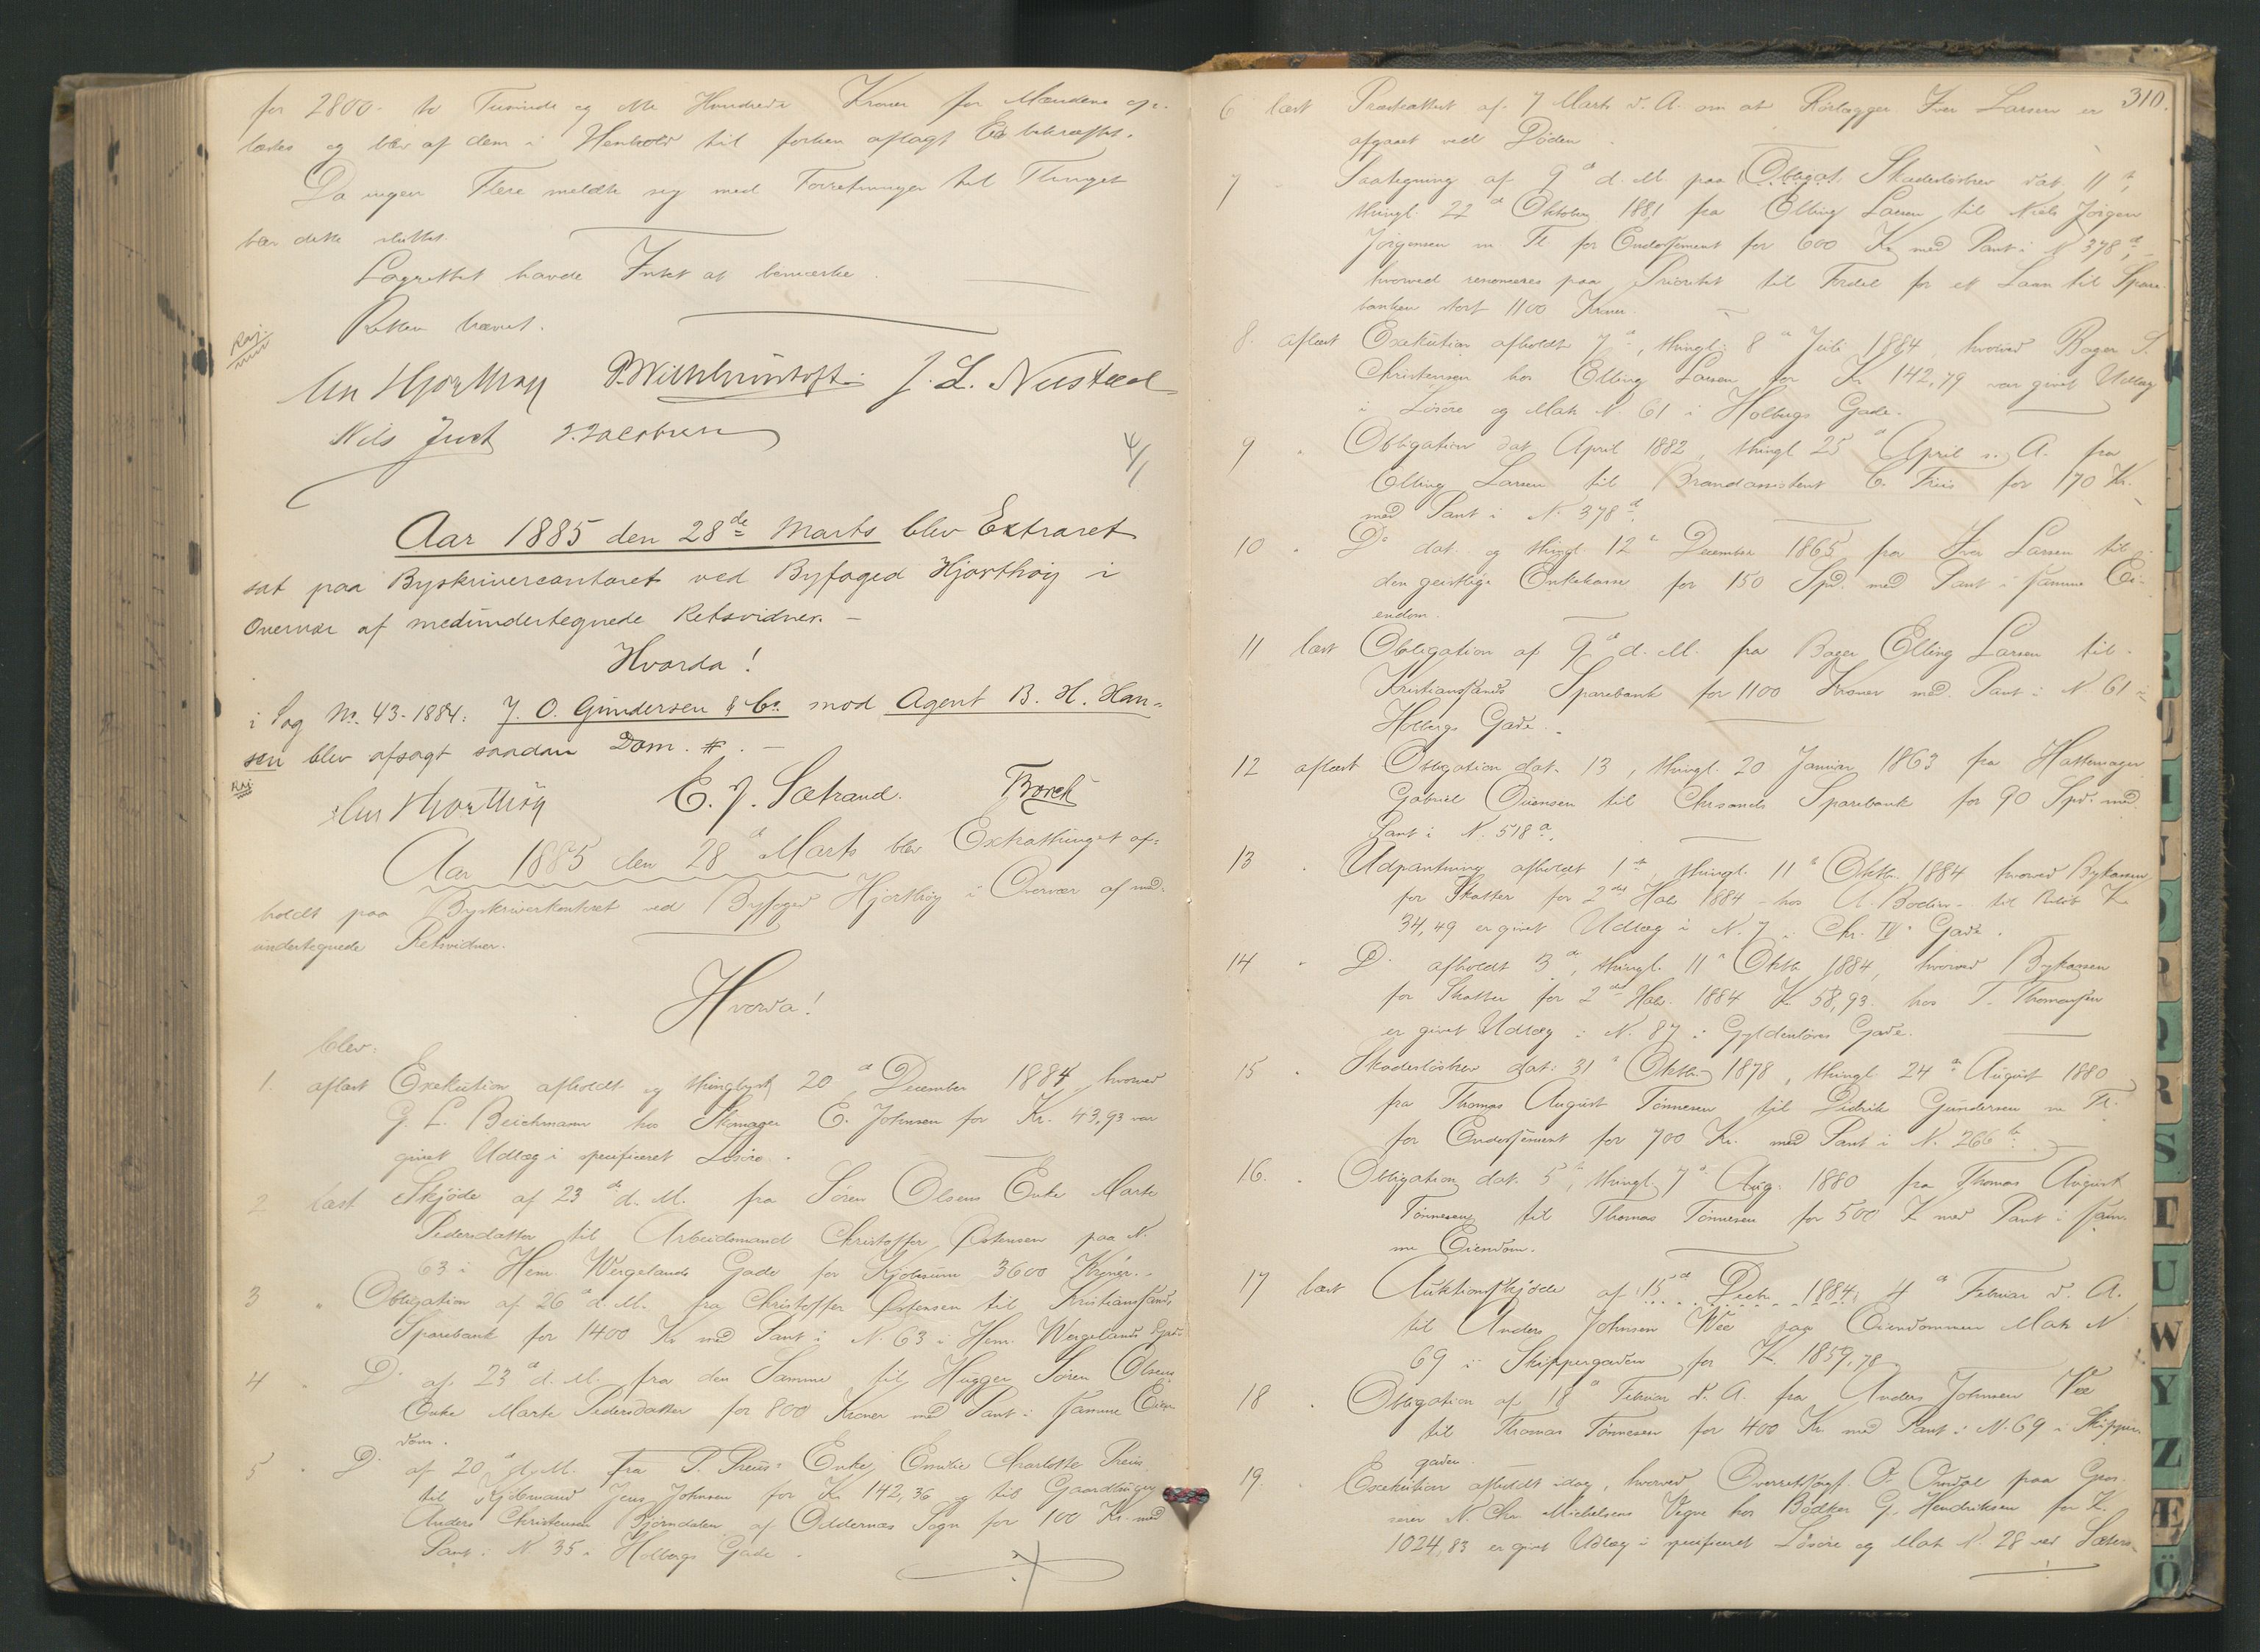 for 2800 - to Tusinde og otte Hundrede Kroner for Mændene op-
læstes og blev af dem i Henhold til forhen aflagt Ed bekræftet.
Da ingen Flere meldte sig med Forretninger til Thinget
blev dette sluttet.
Lagrettet havde Intet at bemærke.
Retten hævet.
J. L. Nustad
Nils Juel J. Jacobsen
4/1
Aar 1885 den 28de Marts blev Extraret
sat paa Byskrivercontoret ved Byfoged Hjorthøy i
Overvær af medundertegnede Retsvidner. -
Hvorda!
i Sag No. 43-1884: J. O. Gundersen & Co. mod Agent B. H. Han-
sen blev afsagt saadan Dom. #. -
E. J. Sætrand. Borch
Aar 1885 den 28de Marts blev Extrathinget af-
holdt paa Byskriverkontoret ved Byfoged Hjorthøy i Overvær af med-
undertegnede Retsvidner.
Hvorda!
blev:
1. aflæst Exekution afholdt og thinglyst 20de December 1884 hvorved
G. L. Beichmann hos Skomager E. Johnsen for Kr. 43,93 var
givet Udlæg i specificeret Løsøre.
2 læst Skjøde af 23de d. M. fra Søren Olsens Enke Marte
Pedersdatter til Arbeidsmand Christoffer Østensen paa N.
63 i Hen. Wergelands Gade for Kjøbesum 3600 Kroner.-
3 " Obligation af 26de d. M. fra Christoffer Østensen til Kristianssands
Sparebank for 1400 Kr med Pant i N. 63 i Hen. Wergelands Gade
4 " Do af 23de d. M. fra den Samme til Hugger Søren Olsens
Enke Marte Pedersdatter for 800 Kroner med Pant i samme Eien-
dom.
5 " Do af 20de d. M. fra P. Preus' Enke, Emilie Charlotte Preus
til Kjøbmand Jens Johnsen for Kr. 142,36 og til Gaardbruger
Anders Christensen Bjørndalen af Oddernæs Sogn for 100 Kr. med
Pant i N. 35 i Holbergs Gade.
310.
6 læst Præsteattest af 7 Marts d. A. om at Rørlægger Iver Larsen er
afgaaet ved Døden.
7 " Paategning af 9de d. M. paa Obligat. Skadesløsbrev dat. 11te,
thingl. 22de Oktober 1881 fra Elling Larsen til Niels Jørgen
Jörgensen m. Fl. for Endossement for 600 Kr. med Pant i N 378d,
hvorved renonceres paa Prioritet til Fordel for et Laan til Spare-
banken stort 1100 Kroner.
8. aflæst Exekution afholdt 7de, thingl. 8de Juli 1884, hvorved Bager S.
Christensen hos Elling Larsen for Kr 142,79 var givet Udlæg
i Løsøre og Matr. N. 61 i Holbergs Gade.
9 " Obligation dat April 1882, thingl 25de April s. A. fra
Elling Larsen til Brandassistent C. Friis for 170 Kr.
med Pant i N. 378d.
10 " Do dat. og thingl. 12te December 1865 fra Iver Larsen til
den geistlige Enkekasse for 150 Spd. med Pant i samme Ei-
endom.
11 læst Obligation af 9de d. M. fra Bager Elling Larsen til
Kristianssands Sparebank for 1100 Kroner med Pant i N. 61 i
Holbergs Gade.
12 aflæst Obligation dat. 13, thingl. 20 Januar 1863 fra Hattemager
Gabriel Evensen til Chrsands Sparebank for 90 Spd. med
Pant i N. 518a.
13 " Udpantning afholdt 1te, thingl. 11te Oktbr. 1884 hvorved Bykassen
for Skatter for 2det Halv. 1884 - hos A. Bodin - til Beløb Kr
34,49 er givet Udlæg i N. 7 i Chr. IVs Gade.
14 " Do afholdt 3de, thingl. 11te Oktbr 1884, hvorved Bykassen
for Skatter for 2det Halv. 1884 Kr 58,93 hos T. Thomassen
er givet Udlæg i N. 87 i Gyldenløves Gade.
15 " Skadesløsbrev dat: 31te Oktbr. 1878, thingl 24de August 1880
fra Thomas August Tönnesen til Didrik Gundersen m Fl.
for Endossement for 700 Kr. med Pant i N. 266b.
16. " Obligation dat. 5te, thingl. 7de Aug. 1880 fra Thomas August
Tönnesen til Thomas Tönnesen for 500 Kr med Pant i sam-
me Eiendom.
17 læst Auktionsskjøde af 15de Decbr. 1884, 4de Februar d. A.
til Anders Johnsen Vee paa Eiendommen Matr N
69 i Skippergaden for Kr. 1859,78
18 " Obligation af 18de Februar d. A. fra Anders Johnsen Vee
til Thomas Tönnesen for 400 Kr. med Pant i N. 69 i Skipper-
gaden.
19. " Exekution afholdt idag, hvorved Overretssagf. O. Omdal paa Gros-
serer N. Chr. Michelsens Vegne hos Bødker G. Hendriksen for Kr.
1024,83 er givet Udlæg i specificeret Løsøre og Matr N. 28 ved Sæters-
R
S
T
U
W
Y
Z
Æ
Ö